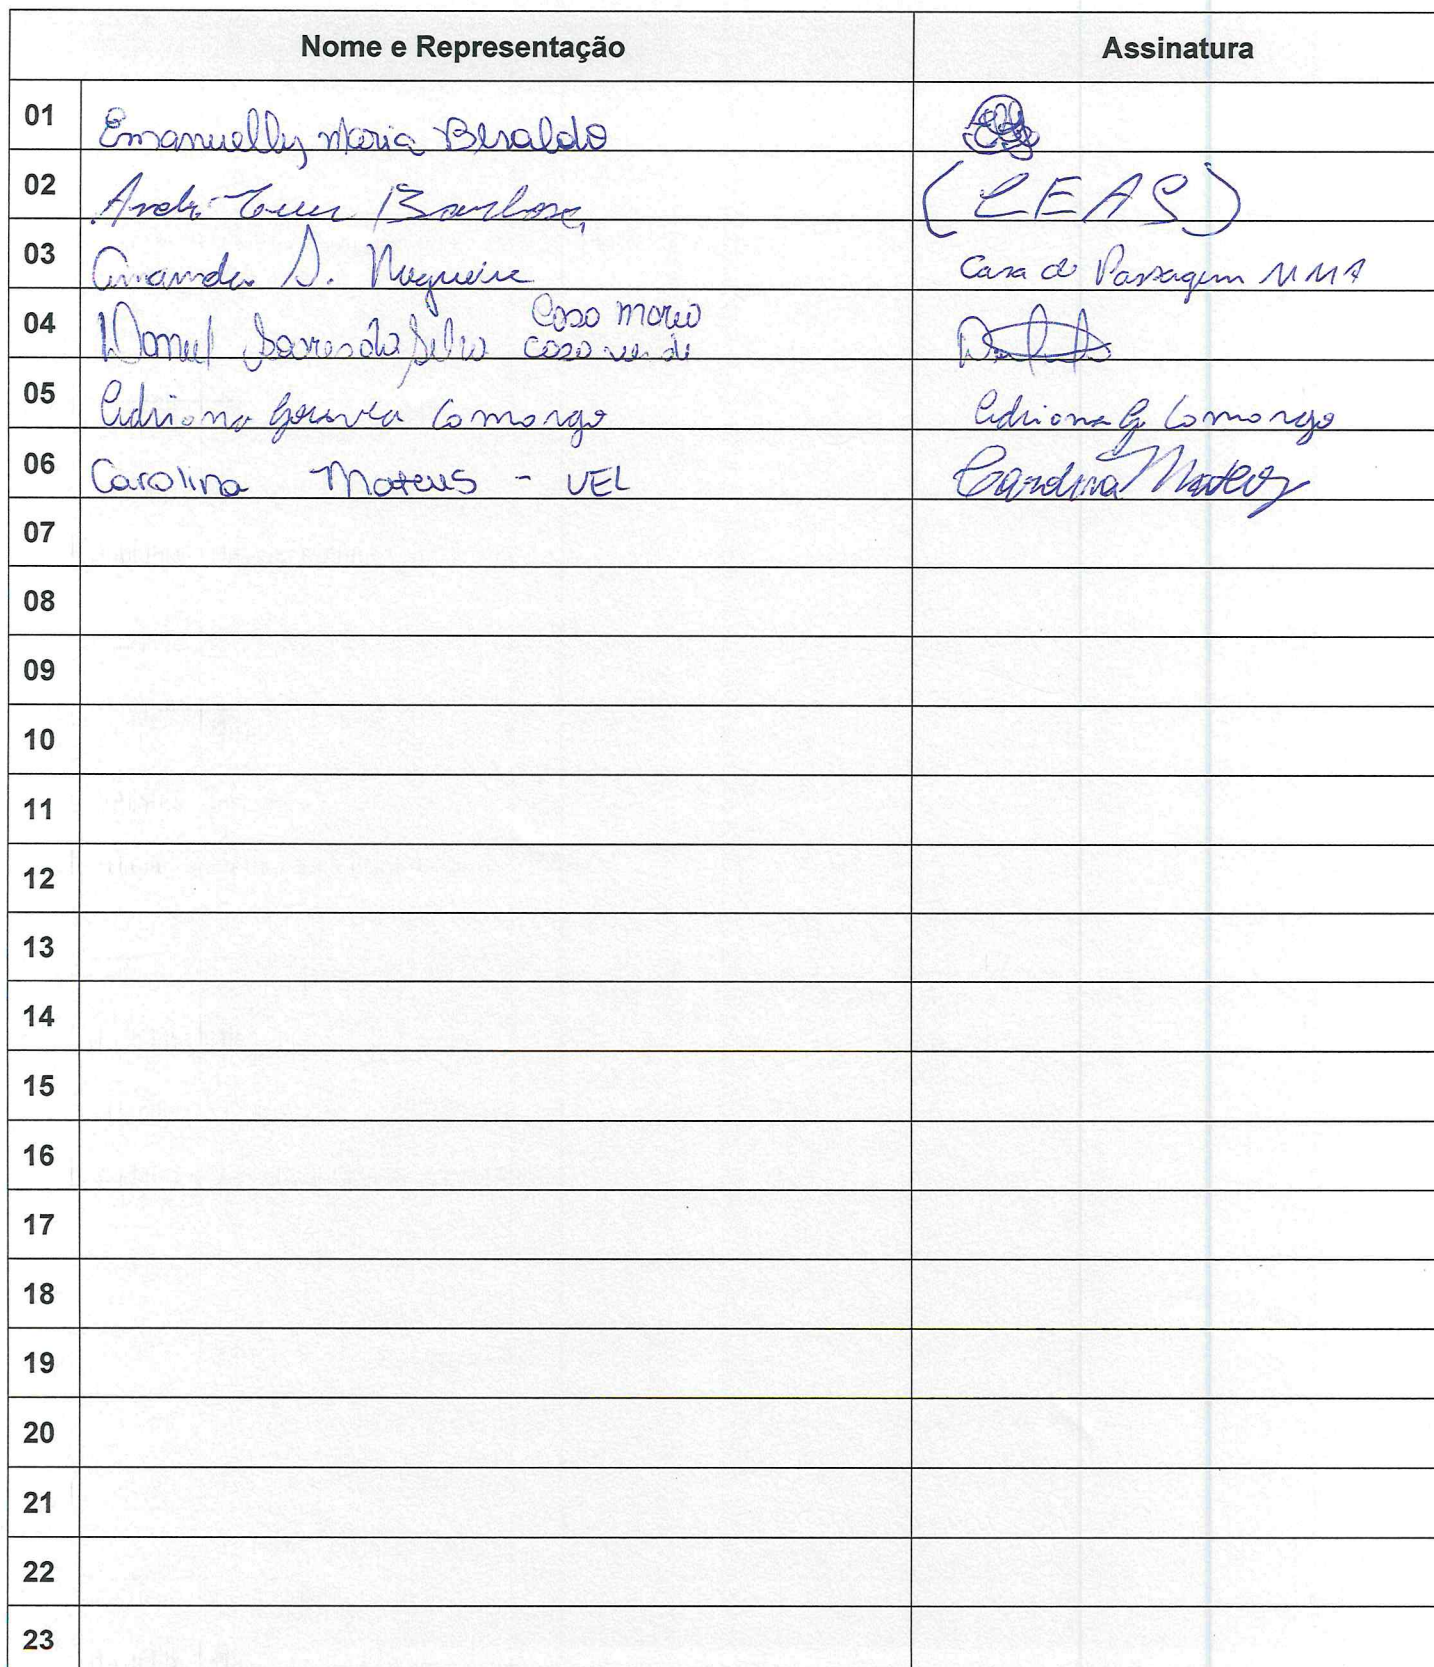 Nome e Representação Assinatura
01 Emanuelly Maria Beraldo
02 André Barbosa (CEAS)
03 Amanda S. Nogueira Casa de Passagem MMA
04 Soares da Silva Casa
05 Adriana Gouveia Camargo Adriana G Camargo
06 Carolina Mateus - UEL Carolina Mateus
07
08
09
10
11
12
13
14
15
16
17
18
19
20
21
22
23